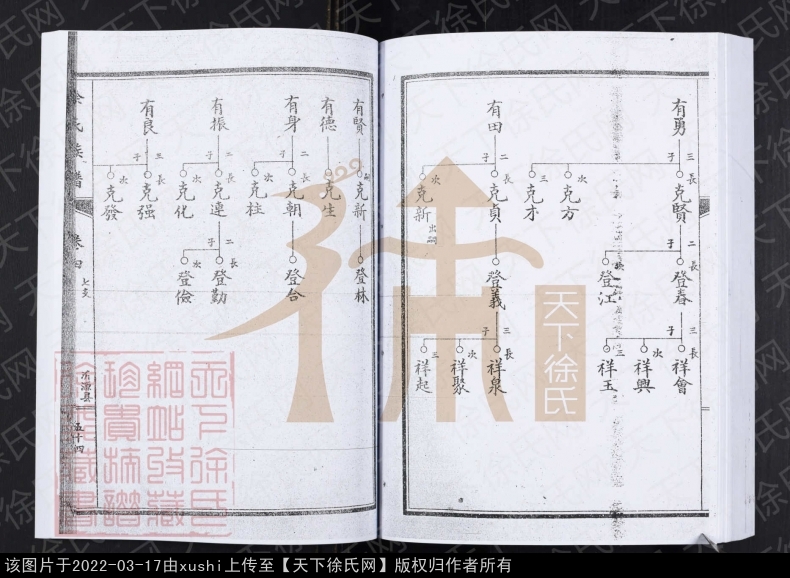 有勇
三子
長 克賢
次 克方
三 克才
二子
長 登春
次 登江
三子
長 祥會
次 祥興
三 祥玉
有田
二子
長 克貞
次 克新 出嗣
登義
三子
長 祥泉
次 祥聚
三 祥起
有賢
克新
登林
有德
克生
有身
二子
長 克朝
次 克柱
登合
有振
二子
長 克連
次 克化
二子
長 登勤
次 登儉
有良
三子
長 克强
次 克發
徐氏族譜
卷四
七支
五十四
天下徐氏
天下徐氏网
该图片于2022-03-17由xushi上传至【天下徐氏网】版权归作者所有